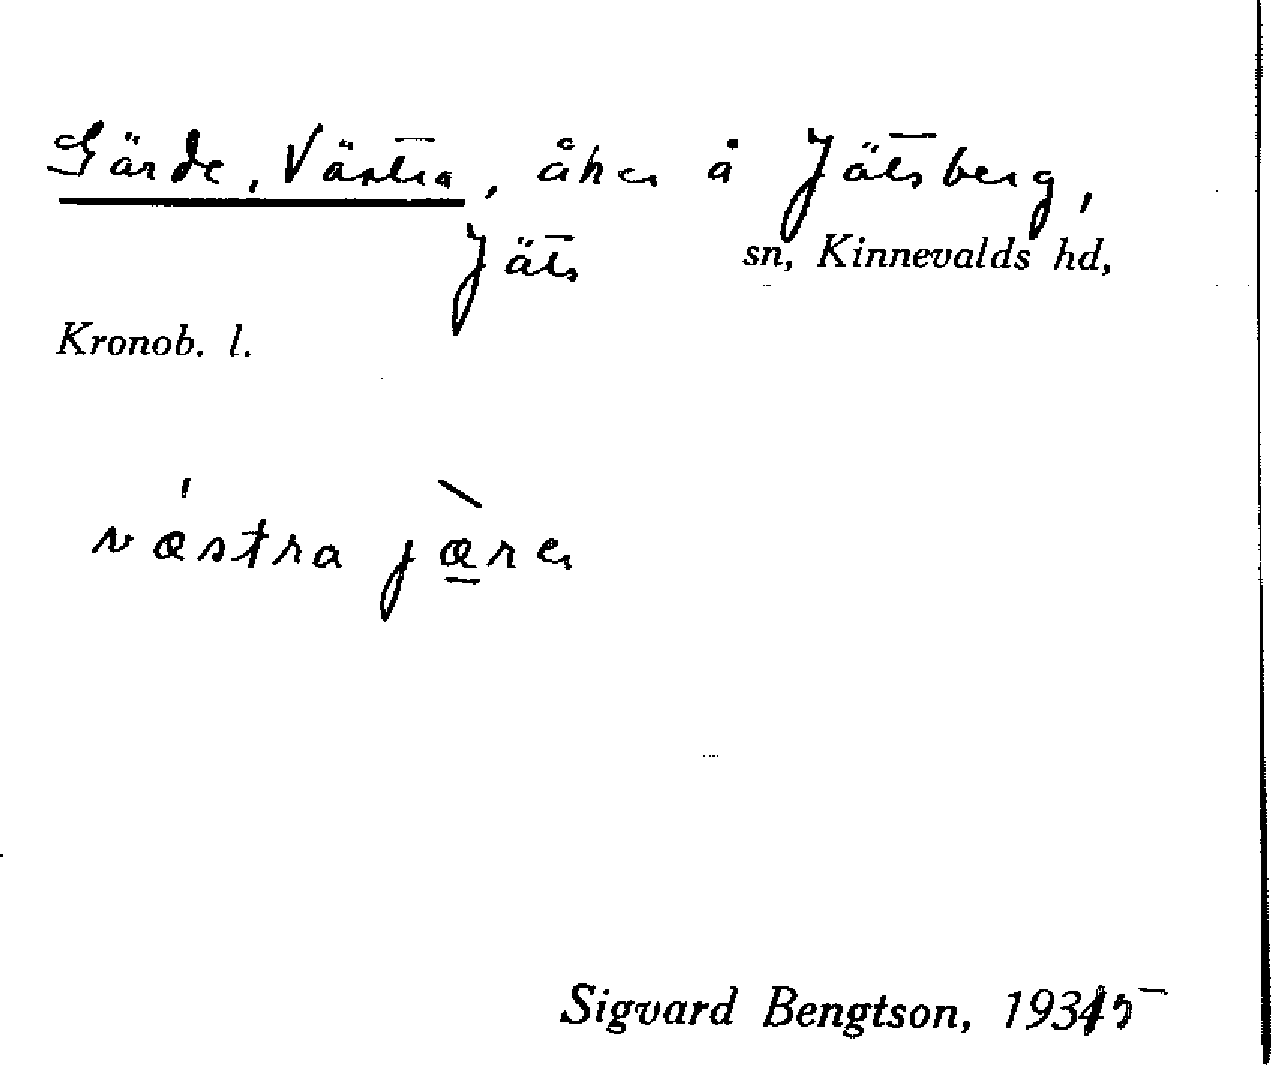 Gärde, Västra, åker å Jätsberg,
Jäts sn, Kinnevalds hd,
Kronob. l.
væstra jærer
Sigvard Bengtson, 1935